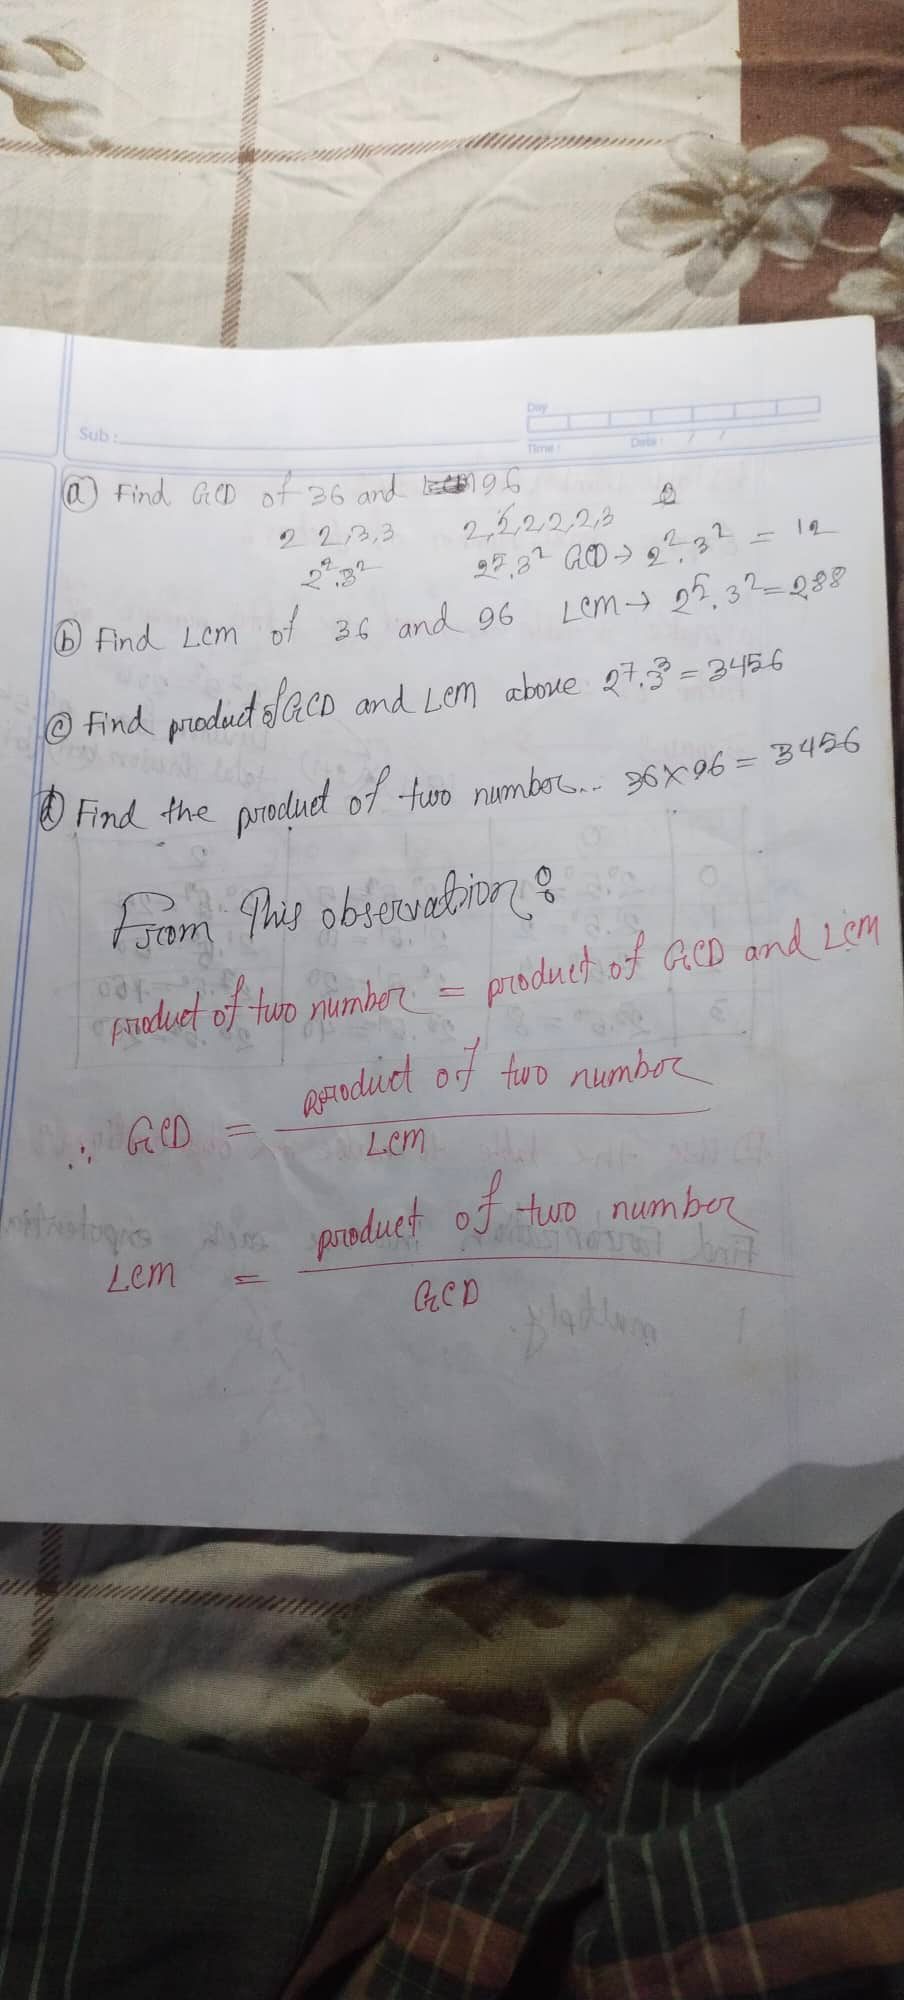 Day
Sub :
Time :
Date : / /
(a) Find GCD of 36 and 96
2 2,3,3 2,2,2,2,2,3
2².3² 2⁵.3² GCD → 2².3² = 12
(b) Find LCM of 36 and 96 LCM → 2⁵.3² = 288
(c) Find product of GCD and LCM above 2⁷.3³ = 3456
(d) Find the product of two number... 36×96 = 3456
From This observation :
product of two number = product of GCD and LCM
∴ GCD = product of two number
LCM
LCM = product of two number
GCD